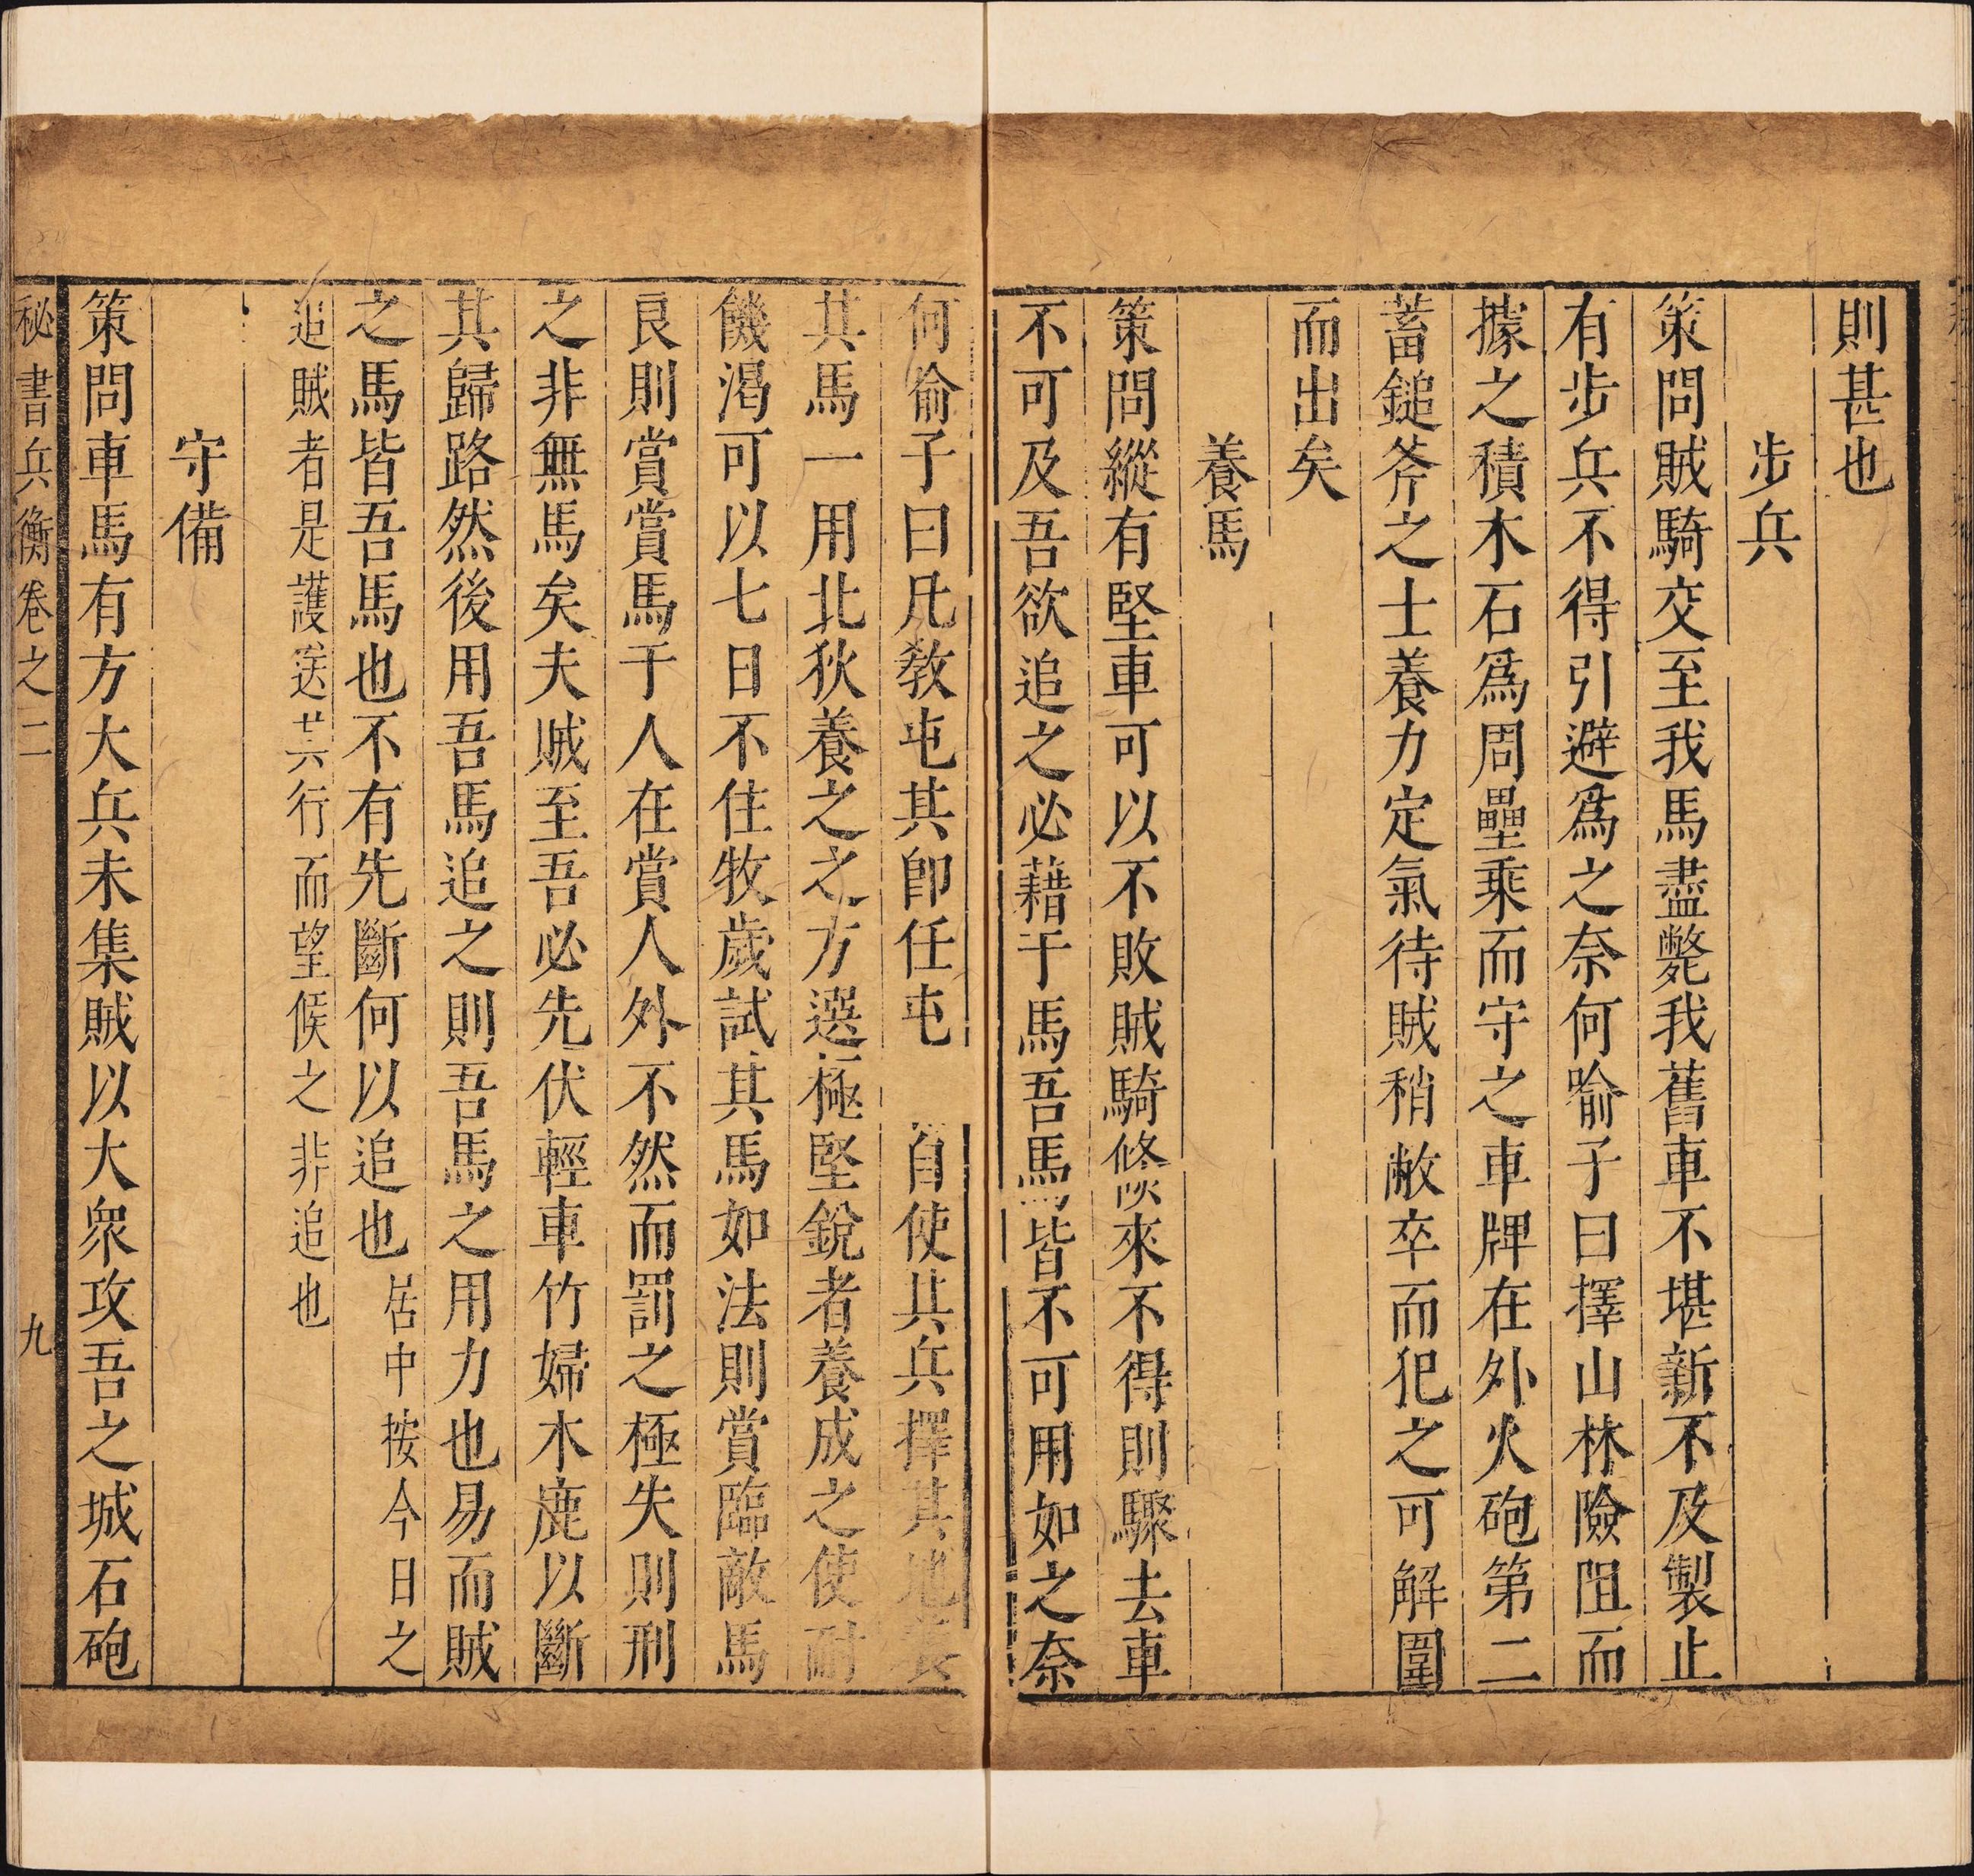 則甚也
步兵
策問賊騎交至我馬盡斃我舊車不堪新不及製止
有步兵不得引避爲之奈何喻子曰擇山林險阻而
據之積木石爲周壘乘而守之車牌在外火砲第二
蓄鎚斧之士養力定氣待賊稍敝卒而犯之可解圍
而出矣
養馬
策問縱有堅車可以不敗賊騎倏來不得則驟去車
不可及吾欲追之必藉于馬吾馬皆不可用如之奈
何喻子曰凡敎屯其卽任屯 自使其兵擇其地養
其馬一用北狄養之之方選極堅銳者養成之使耐
饑渴可以七日不住牧歲試其馬如法則賞臨敵馬
良則賞賞馬于人在賞人外不然而罰之極失則刑
之非無馬矣夫賊至吾必先伏輕車竹婦木鹿以斷
其歸路然後用吾馬追之則吾馬之用力也易而賊
之馬皆吾馬也不有先斷何以追也居中按今日之
追賊者是護送其行而望候之非追也
守備
策問車馬有方大兵未集賊以大衆攻吾之城石砲
秘書兵衡卷之二 九